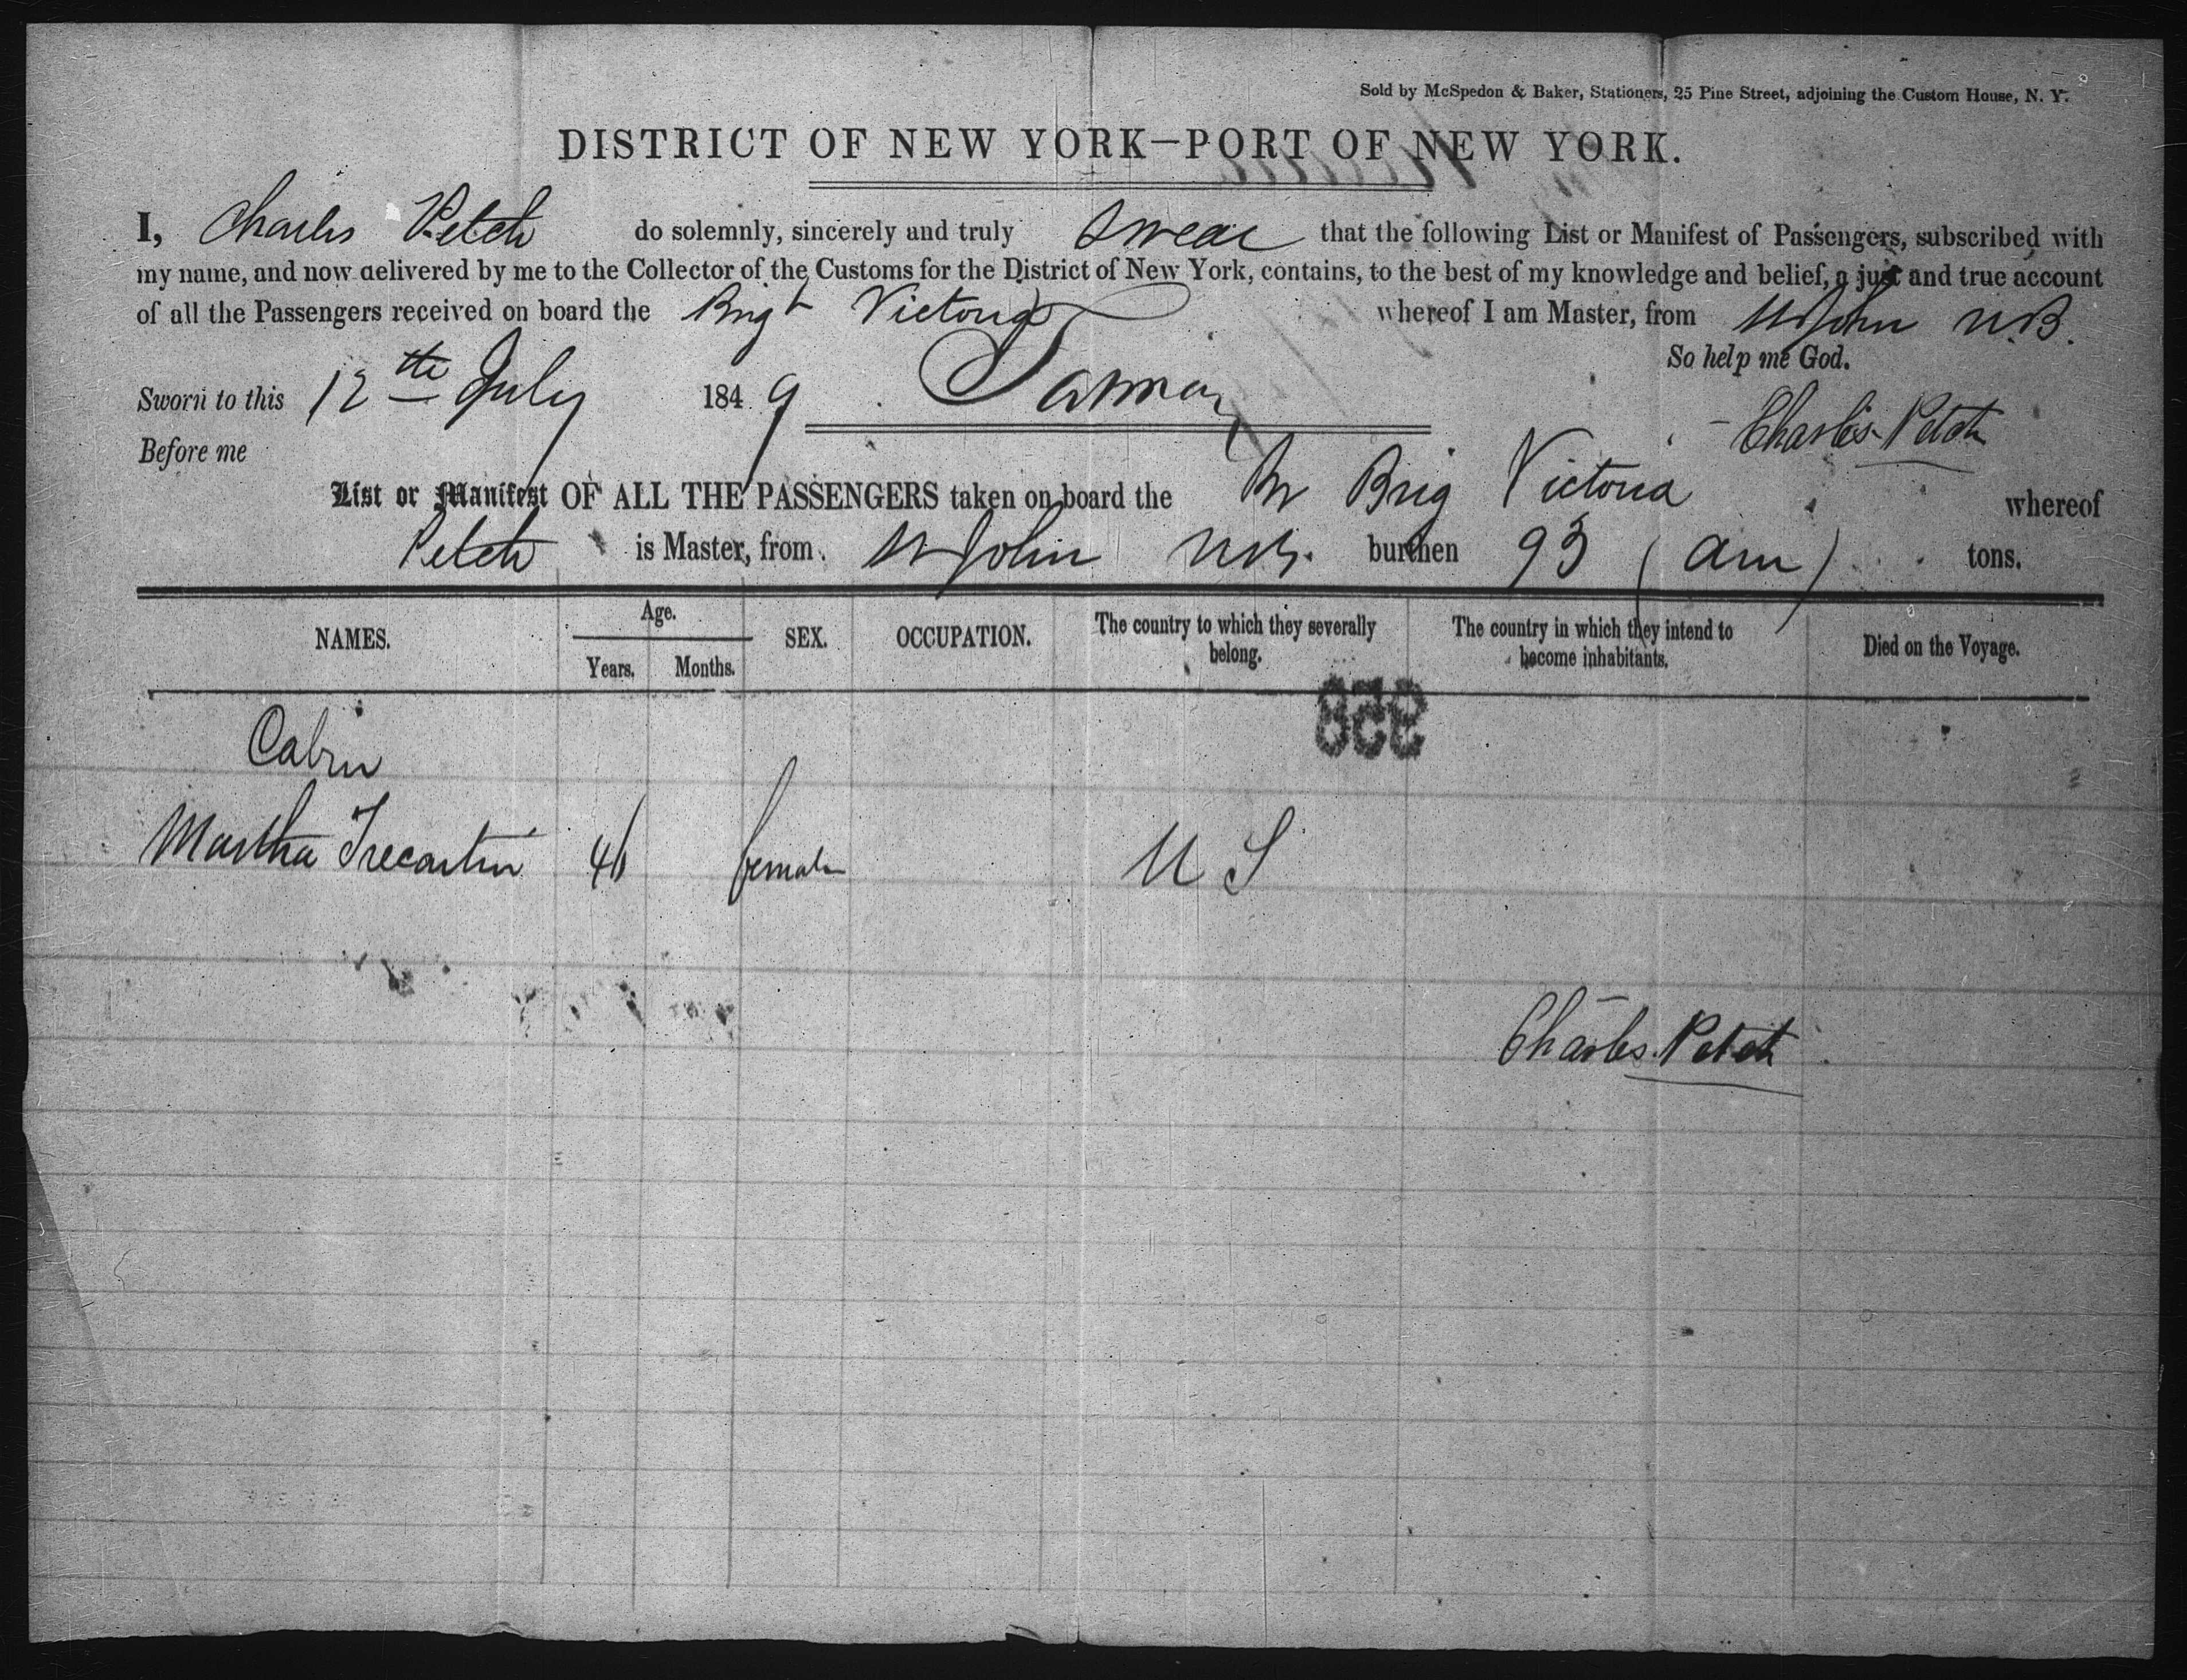 Sold by McSpedon & Baker, Stationers, 25 Pine Street, adjoining the Custom House, N. Y.
DISTRICT OF NEW YORK—PORT OF NEW YORK.
I, Charles Petch do solemnly, sincerely and truly swear that the following List or Manifest of Passengers, subscribed with
my name, and now delivered by me to the Collector of the Customs for the District of New York, contains, to the best of my knowledge and belief, a just and true account
of all the Passengers received on board the Brigt Victoria whereof I am Master, from St John N.B.
So help me God.
Sworn to this 12th July 1849
Charles Petch
Before me
List or Manifest OF ALL THE PASSENGERS taken on board the Br Brig Victoria whereof
Petch is Master, from St John NB. burthen 93 (am) tons.
NAMES. Age. Years. Months. SEX. OCCUPATION. The country to which they severally belong. The country in which they intend to become inhabitants. Died on the Voyage.
958
Cabin
Martha Trecartin 46 female U S
Charles Petch